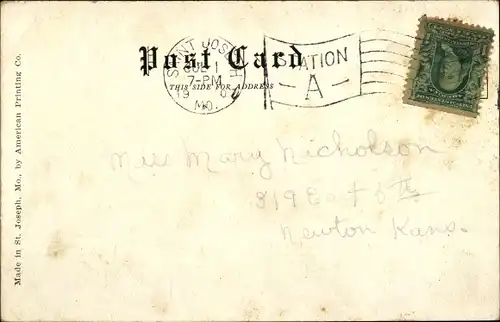 Post Card
THIS SIDE FOR ADDRESS
SAINT JOSEPH
JUL 1
7-PM
19
MO.
STATION
A
Miss Mary Nicholson
819 East 8th
Newton Kans.
Made in St. Joseph, Mo., by American Printing Co.